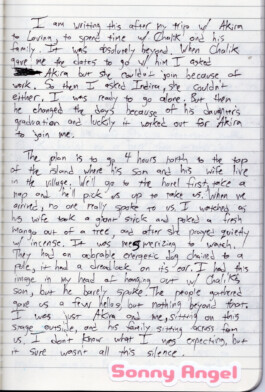 I am writing this after my trip w/ Akira
to Lovina, to spend time w/ Chalik and his
family. It was absolutely beyond. When Chalik
gave me the dates to go w/ him I asked
Akira but she couldn't join because of
work. So then I asked Indira, she couldn't
either. I was ready to go alone. But then
he changed the days because of his daughter's
graduation and luckily it worked out for Akira
to join me.
The plan is to go 4 hours north to the top
of the island where his son and his wife live
in the village. We'll go to the hotel first, take a
nap and he'll pick us up to take us. When we
arrived, no one really spoke to us. I watched as
his wife took a giant stick and poked a fresh
mango out of a tree, and after she prayed quietly
w/ incense. It was mesmerizing to watch.
They had an adorable energetic dog chained to a
pole, it had a dreadlock on its ear. I had this
image in my head of hanging out w/ Chalik's
son, but he barely spoke. The people gathered
gave us a few hellos, but nothing beyond that.
It was just Akira and me, sitting on this
stage outside, and his family sitting across from
us. I don't know what I was expecting, but
it sure wasn't all this silence.
Sonny Angel